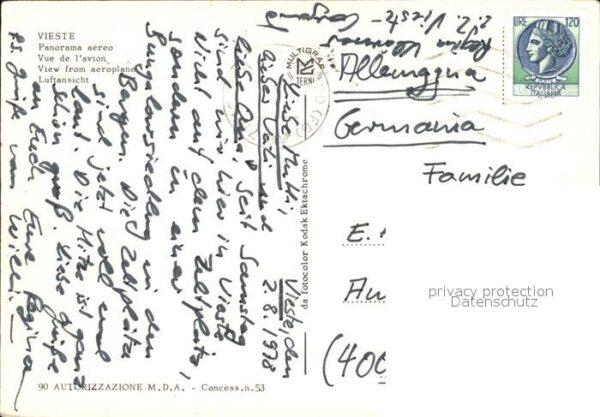 VIESTE
Panorama aereo
Vue de l'avion
View from aeroplane
Luftansicht
MULTIGRAF
TERNI
LIRE 120
REPUBBLICA
ITALIANA
z.Z. Vieste -
Regina
Vieste, den
2.8.1978
Liebe Mutti,
lieber Vati und
liebe Oma, Seit Samstag
sind wir hier in Vieste
Nicht auf dem Zeltplatz,
sondern in einer
Bungalowsiedlung in den
Bergen. Die Zeltplätze
sind jetzt voll und
laut. Die Hitze ist ganz
schön groß. Liebe Grüße
an Euch Eure Regina
PS. Grüße von Willi
da fotocolor Kodak Ektachrome
Allemagna
Germania
Familie
E.
Au
(400
privacy protection
Datenschutz
90 AUTORIZZAZIONE M.D.A. - Concess.n.53